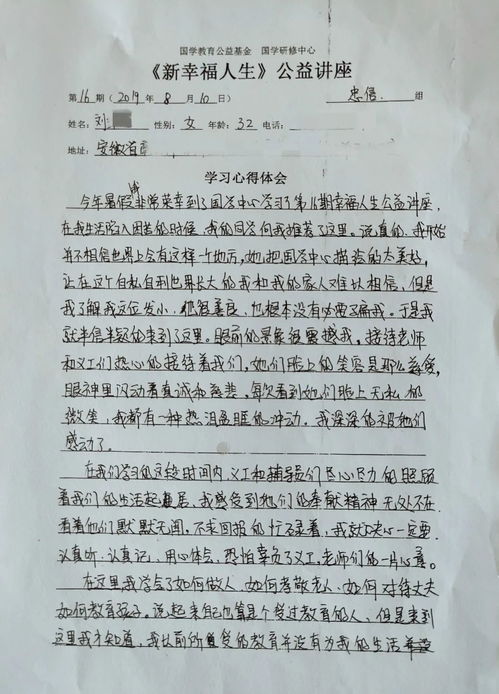 国学教育公益基金 国学研修中心
《新幸福人生》公益讲座
第16期(2019年8月10日) 忠信 组
姓名:刘 性别:女 年龄:32 电话:
地址:安徽省
学习心得体会
今年暑假我非常荣幸到了国学中心学习了第16期幸福人生公益讲座,
在我生活陷入困苦的时候,我的同学向我推荐了这里。说真的,我开始
并不相信世界上会有这样一个地方,她把国学中心描绘的太美好,
让在这个自私自利世界长大的我和我的家人难以相信,但是
我了解我这位发小,他很善良,也根本没有必要骗我。于是我
就半信半疑的来到了这里。眼前的景象很震撼我,接待老师
和义工们热心的接待着我们,她们脸上的笑容是那么慈爱,
眼神里闪动着真诚和慈悲,每次看到她们脸上无私的
微笑,我都有一种热泪盈眶的冲动。我深深的被她们
感动了。
在我们学习的这段时间内,义工和辅导员们尽心尽力的照顾
着我们的生活起居,我感受到他们的奉献精神无处不在
看着他们默默无闻,不求回报的忙碌着,我就决心一定要
认真听、认真记,用心体会,恐怕辜负了义工,老师们的一片心意。
在这里我学会了如何做人,如何孝敬老人、如何对待丈夫
如何教育孩子。说起来自己也算是个受过教育的人,但是来到
这里我才知道,我以前所受的教育并没有为我的生活